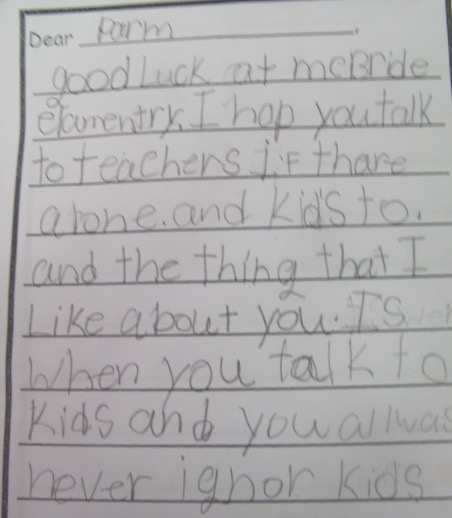 Dear Parm.
good Luck at mcBride
elamentry. I hop you talk
to teachers if thare
alone. and kids to.
and the thing that I
Like about you. Is
when you talk to
kids and you allwas
never ignor kids